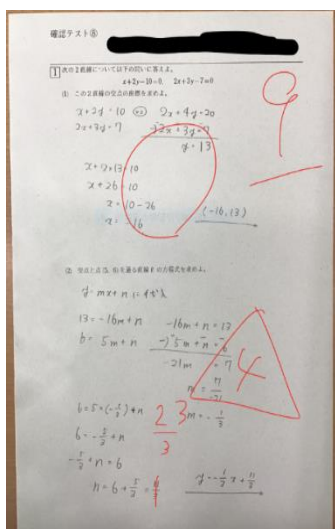 確認テスト⑧
1 次の2直線について以下の問いに答えよ。
x+2y-10=0, 2x+3y-7=0
(1) この2直線の交点の座標を求めよ。
x+2y=10 (×2) 2x+4y=20
2x+3y=7 -)2x+3y=7
y=13
x+2×13=10
x+26=10
x=10-26
x=-16 (-16,13)
9
(2) 交点と点(5, 6)を通る直線ℓの方程式を求めよ。
y=mx+n
13=-16m+n -16m+n=13
6=5m+n -)5m+n=6
-21m=7
m=7/-21
m=-1/3
4
6=5×(-1/3)+n
6=-5/3+n
-5/3+n=6
23/3
n=6+5/3=